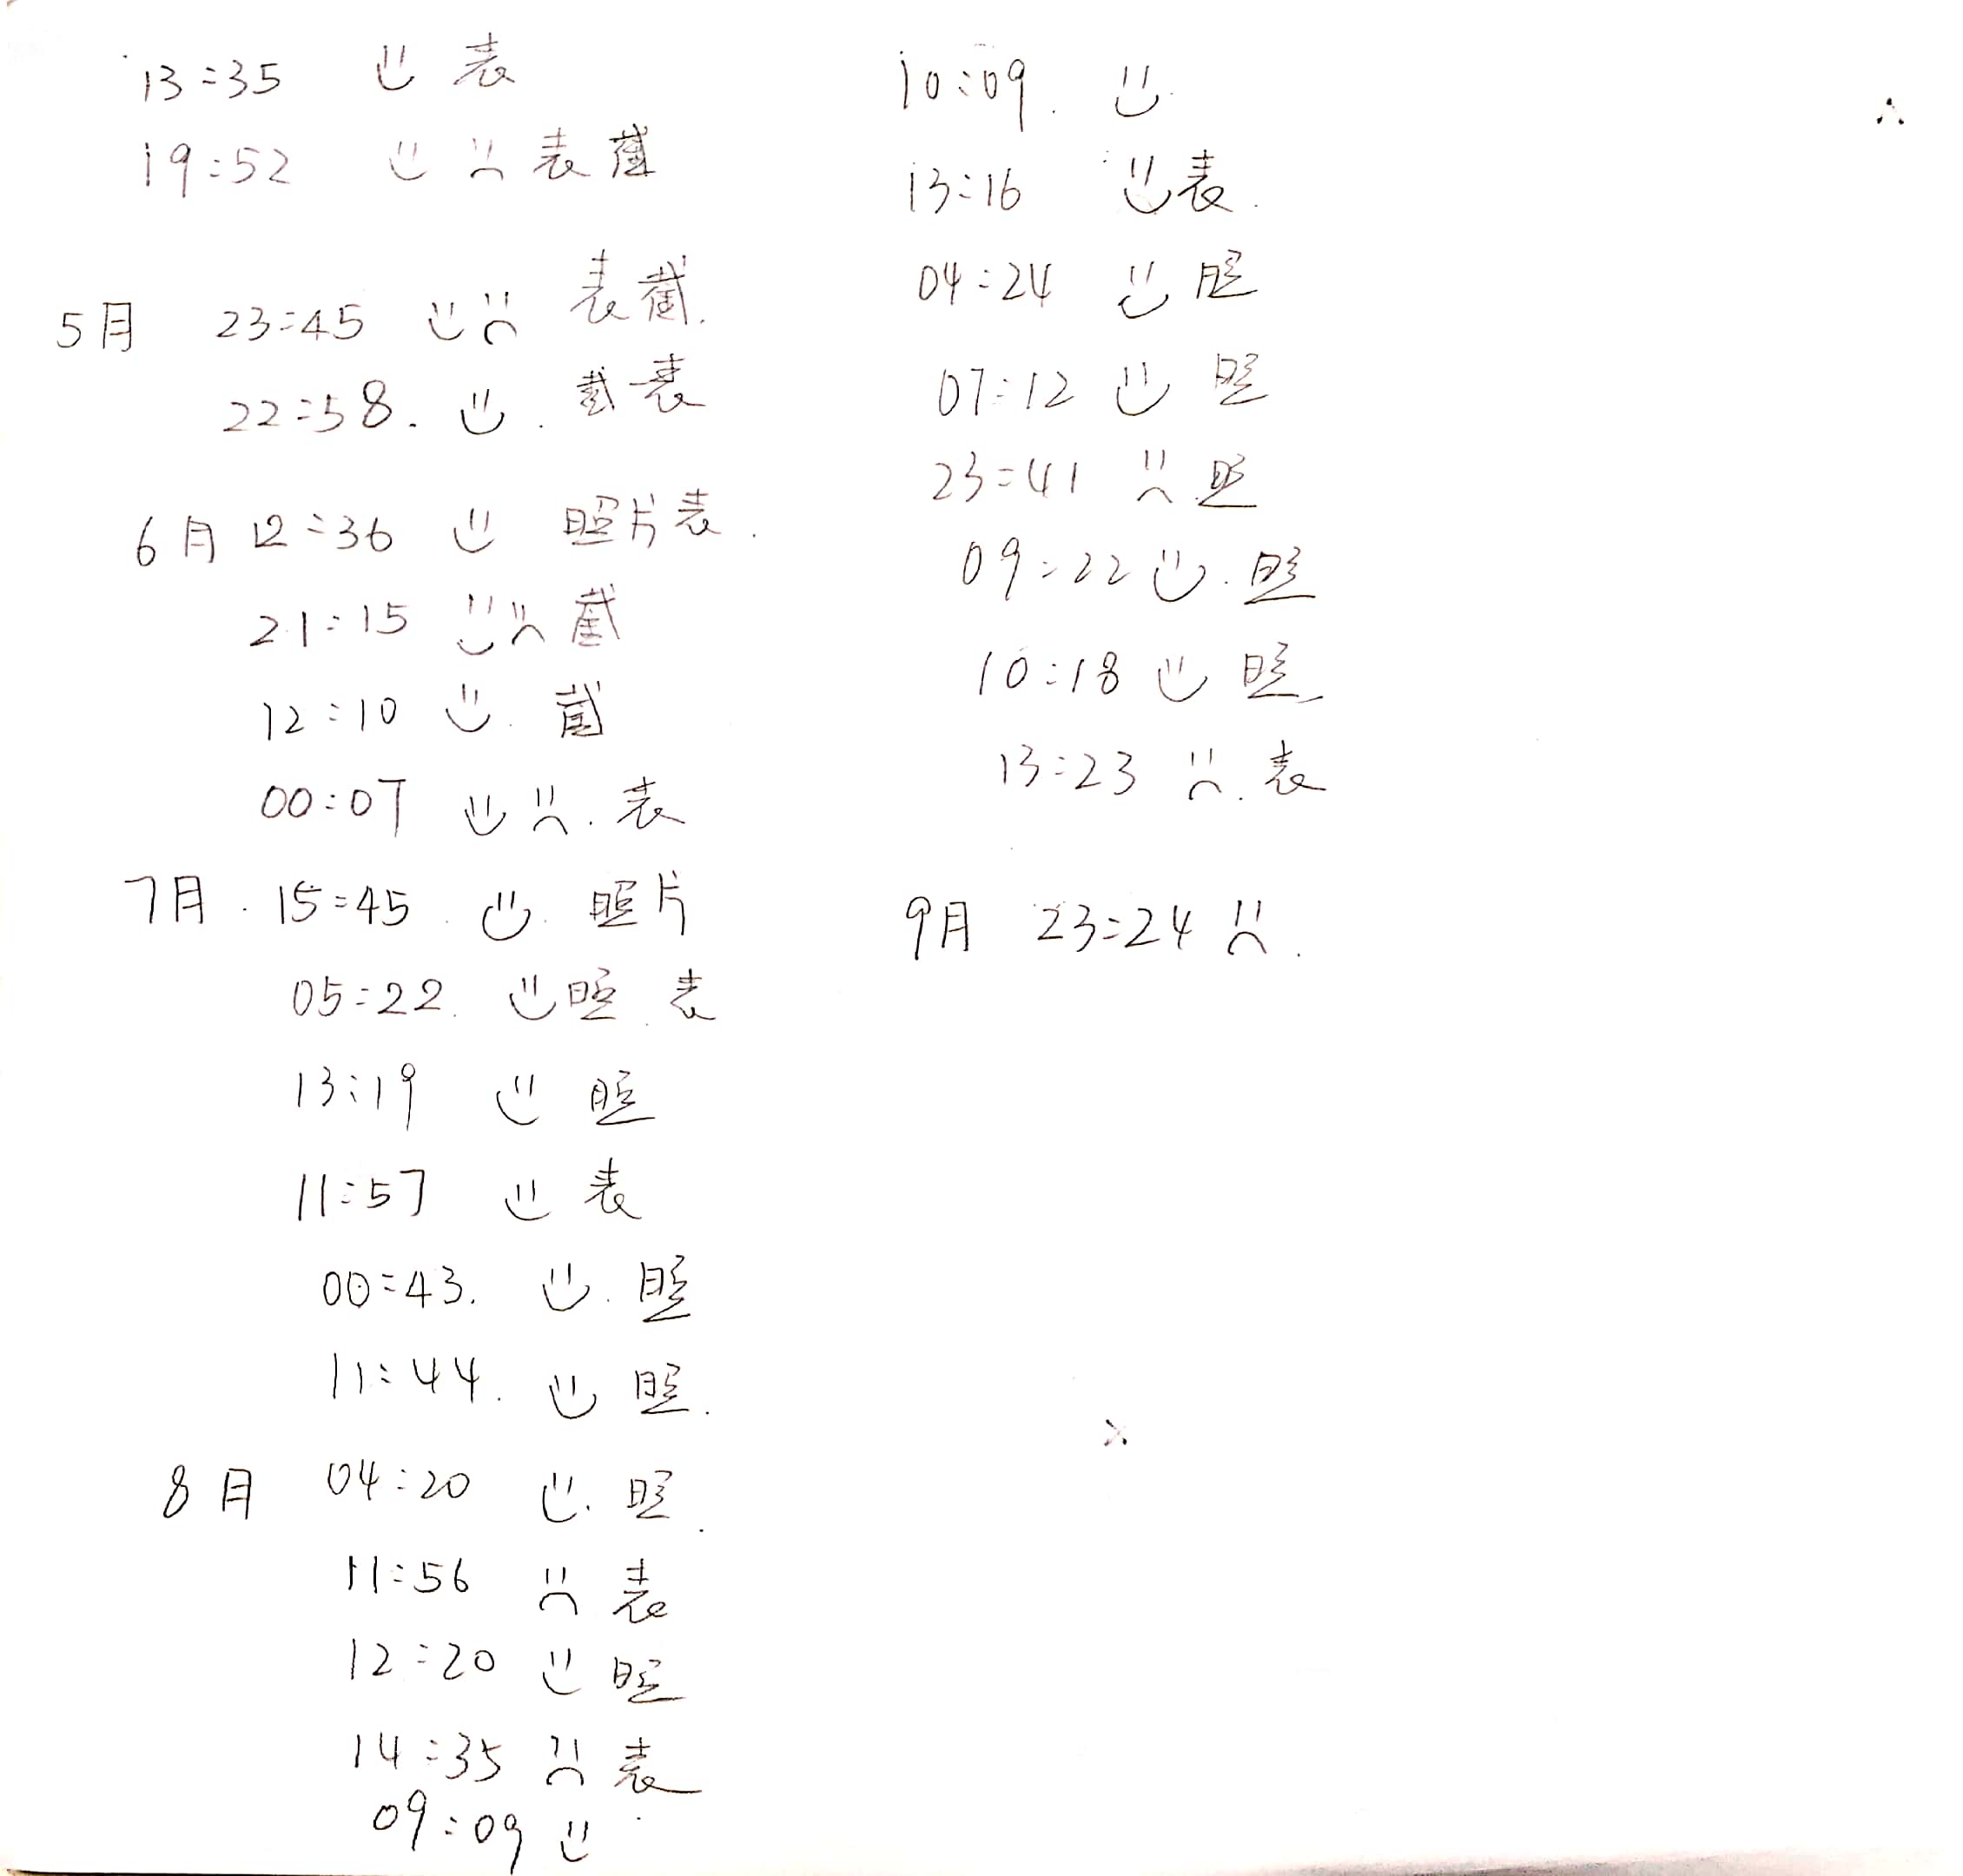 13:35 表
19:52 表截
5月 23:45 表截.
22:58. 截表
6月 12:36 照片表.
21:15 截
12:10 截
00:07 表
7月. 15:45 照片
05:22. 照 表
13:19 照
11:57 表
00:43. 照
11:44. 照.
8月 04:20 照.
11:56 表
12:20 照
14:35 表
09:09
10:09.
13:16 表.
04:24 照
07:12 照
23:41 照
09:22 照
10:18 照
13:23 表
9月 23:24